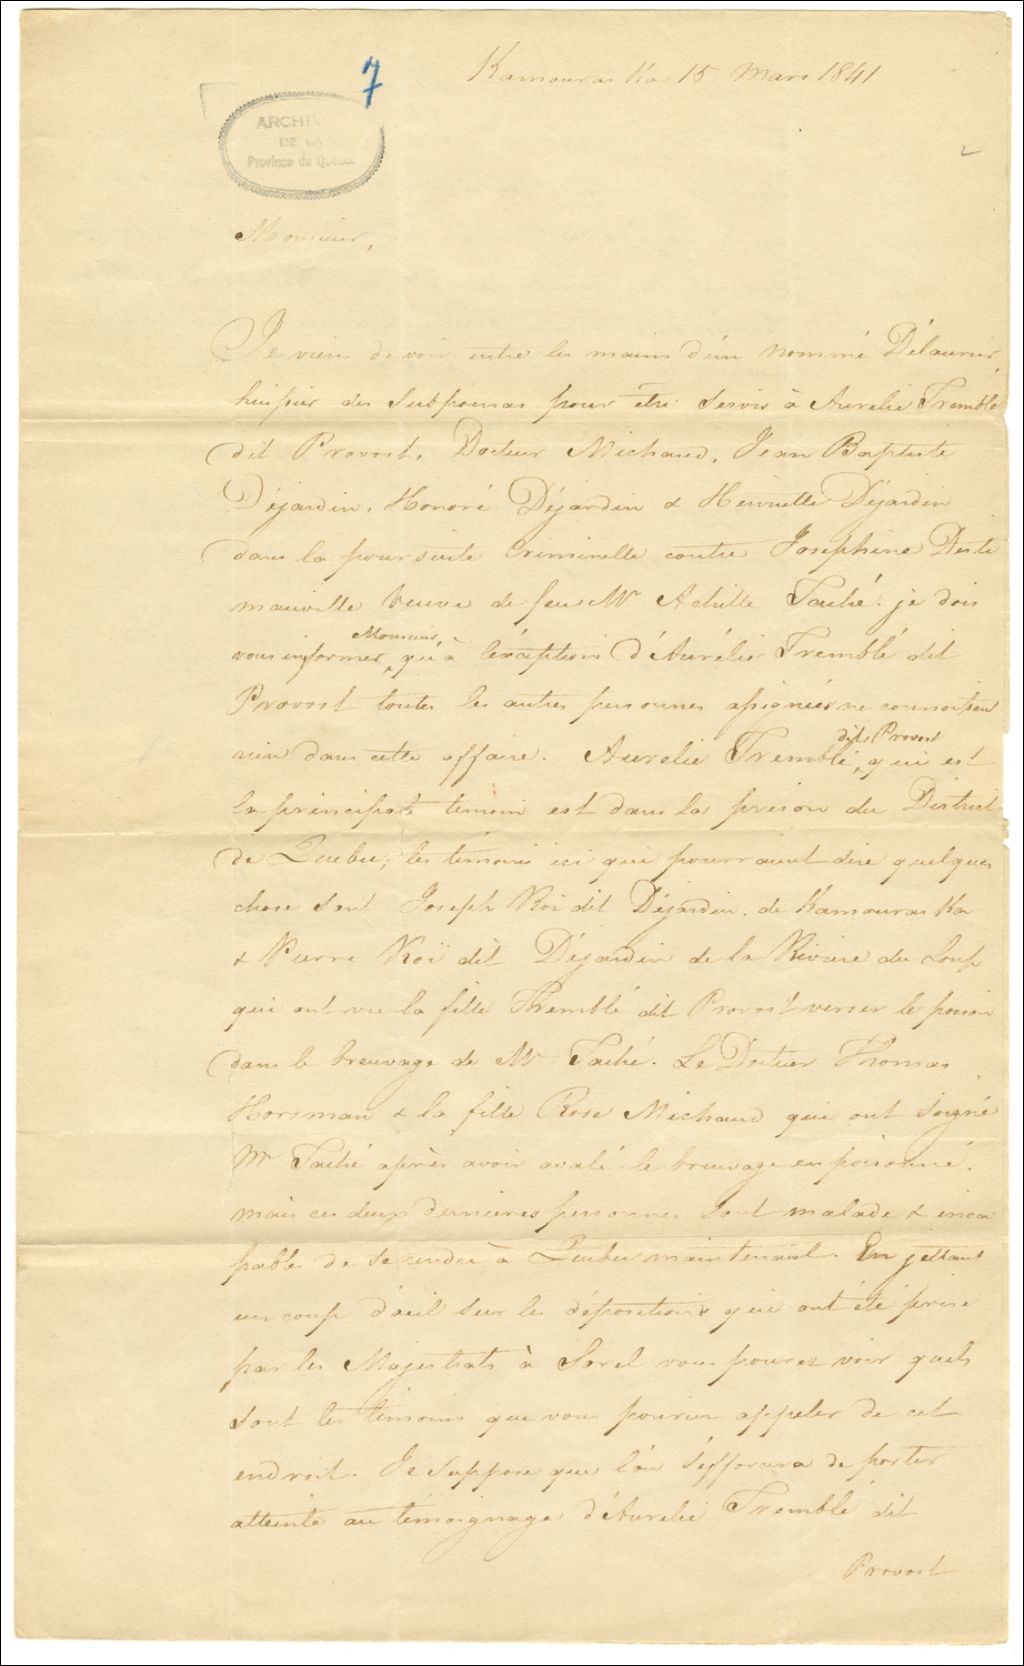 7
Kamouraska 15 Mars 1841
ARCHIV
DE LA
Province de Québec
Monsieur,
Je viens de voir entre les mains d'un nommé Délaurier
huissier des Subpoenas pour être servis à Aurelie Tremblé
dit Provost, Docteur Michaud, Jean Baptiste
Déjardin, Honoré Déjardin & Henriette Déjardin
dans la poursuite Criminelle contre Josephine Desti
mauville veuve de feu Mr Achille Taché. je dois
Monsieur
vous informer, qu'à l'éxception d'Aurélie Tremblé dit
Provost toutes les autres personnes assignées ne connoissent
rien dans cette affaire. Aurelie Tremblé, qui est
dite Provost
la principale témoin est dans la prison du District
de Quebec; les témoins ici qui pourraient dire quelques
chose sont Joseph Roi dit Déjardin de Kamouraska
& Pierre Roï dit Déjardin de la Riviere du Loup
qui ont vu la fille Tremblé dit Provost verser le poison
dans le breuvage de Mr Taché. Le Docteur Thomas
Horsman & la fille Rose Michaud qui ont soigné
Mr Taché après avoir avalé le breuvage empoisonné.
mais ces deux dernières personnes sont malade & inca
pables de se rendre à Quebec maintenant. En jettant
un coup d'oeil sur les dépositions qui ont été prise
par les Magistrats à Sorel vous pourez voir quels
sont les témoins que vous pouriez appeler de cet
endroit. Je suppose que l'on s'efforcera de porter
atteinte au témoignage d'Aurelie Tremblé dit
Provost